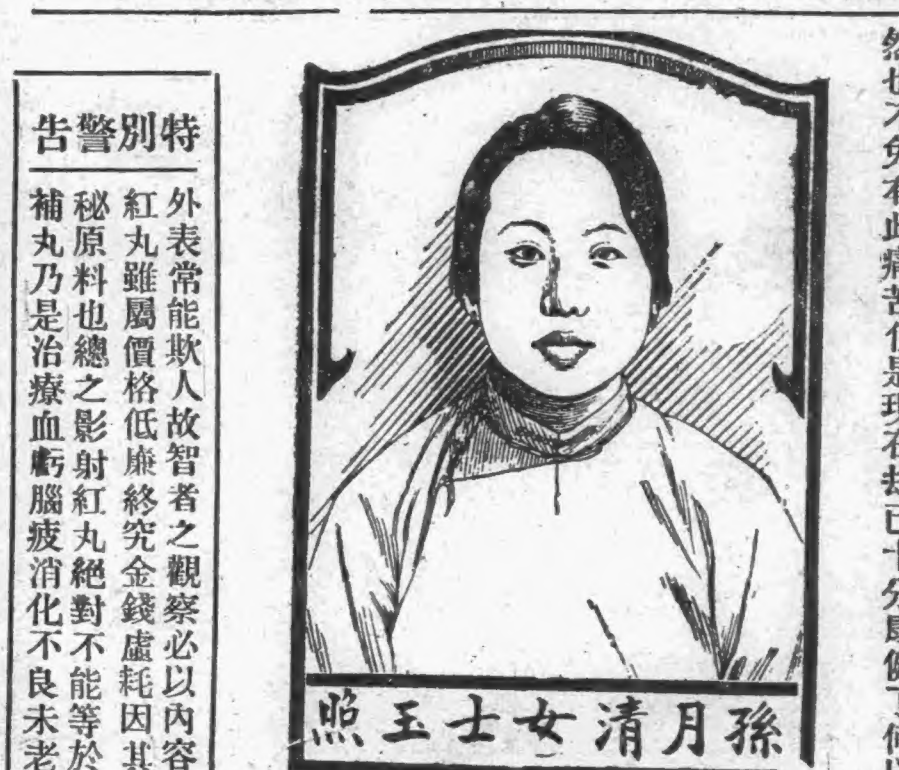 然也不免有此痛苦但是現在却已十分康健了何以
孫月清女士玉照
特別警告
外表常能欺人故智者之觀察必以內容
紅丸雖屬價格低廉終究金錢虛耗因其
秘原料也總之影射紅丸絕對不能等於
補丸乃是治療血虧腦疲消化不良未老